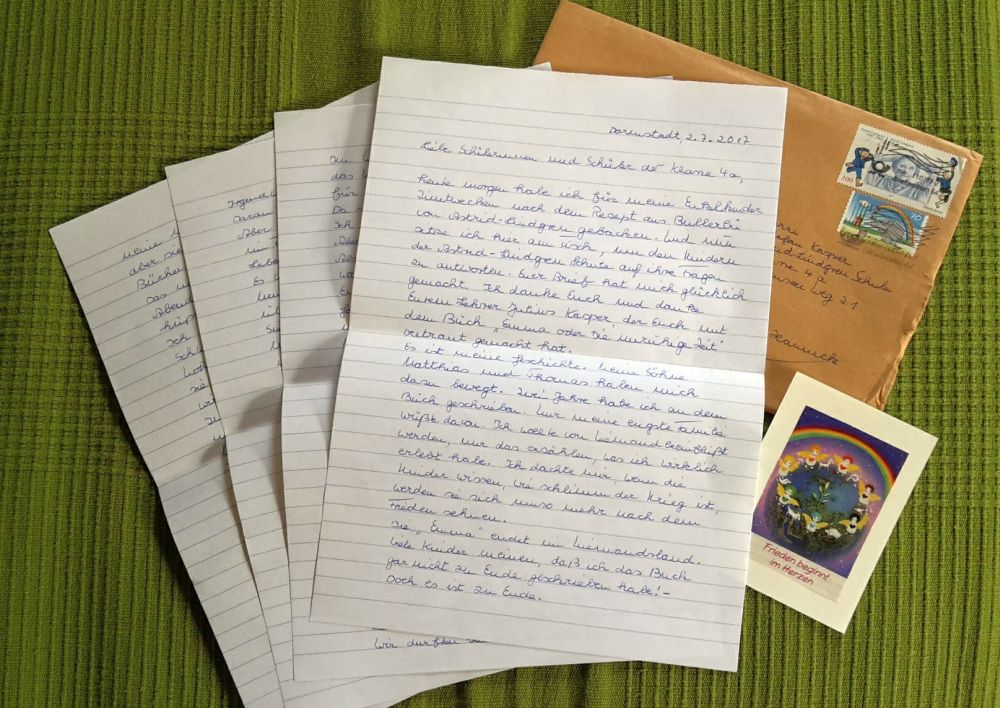 Darmstadt, 2.7.2017
Liebe Schülerinnen und Schüler der Klasse 4a,
heute morgen habe ich für meine Enkelkinder
Zimtwecken nach dem Rezept aus Bullerbü
von Astrid-Lindgren gebacken. Und nun
sitze ich hier am Tisch, um den Kindern
der Astrid-Lindgren Schule auf ihre Fragen
zu antworten. Euer Brief hat mich glücklich
gemacht. Ich danke Euch und danke
Eurem Lehrer Julius Kasper der Euch mit
dem Buch „Emma oder Die unruhige Zeit"
vertraut gemacht hat.
Es ist meine Geschichte. Meine Söhne
Matthias und Thomas haben mich
dazu bewegt. Zwei Jahre habe ich an dem
Buch geschrieben. Nur meine engste Familie
wußte davon. Ich wollte von Niemand beeinflußt
werden, nur das erzählen, was ich wirklich
erlebt habe. Ich dachte mir, wenn die
Kinder wissen, wie schlimm der Krieg ist,
werden sie sich umso mehr nach dem
Frieden sehnen.
Die „Emma" endet im Niemandsland.
Viele Kinder meinen, daß ich das Buch
gar nicht zu Ende geschrieben habe! -
Doch es ist zu Ende.
Wir durften
meine
aber sie
Bücher
Das
Abend
Ich
sie
Irgend
daran
Aber
in
Leben
Es
das
für
Da
Ich
100
70
Kasper
Lindgren Schule
Weg 21
Frieden beginnt
im Herzen